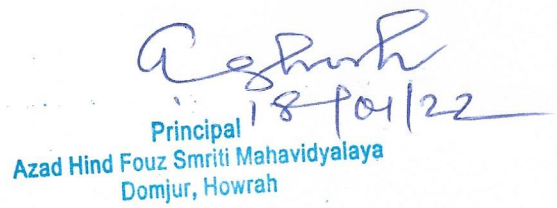 aghosh
18/01/22
Principal
Azad Hind Fouz Smriti Mahavidyalaya
Domjur, Howrah